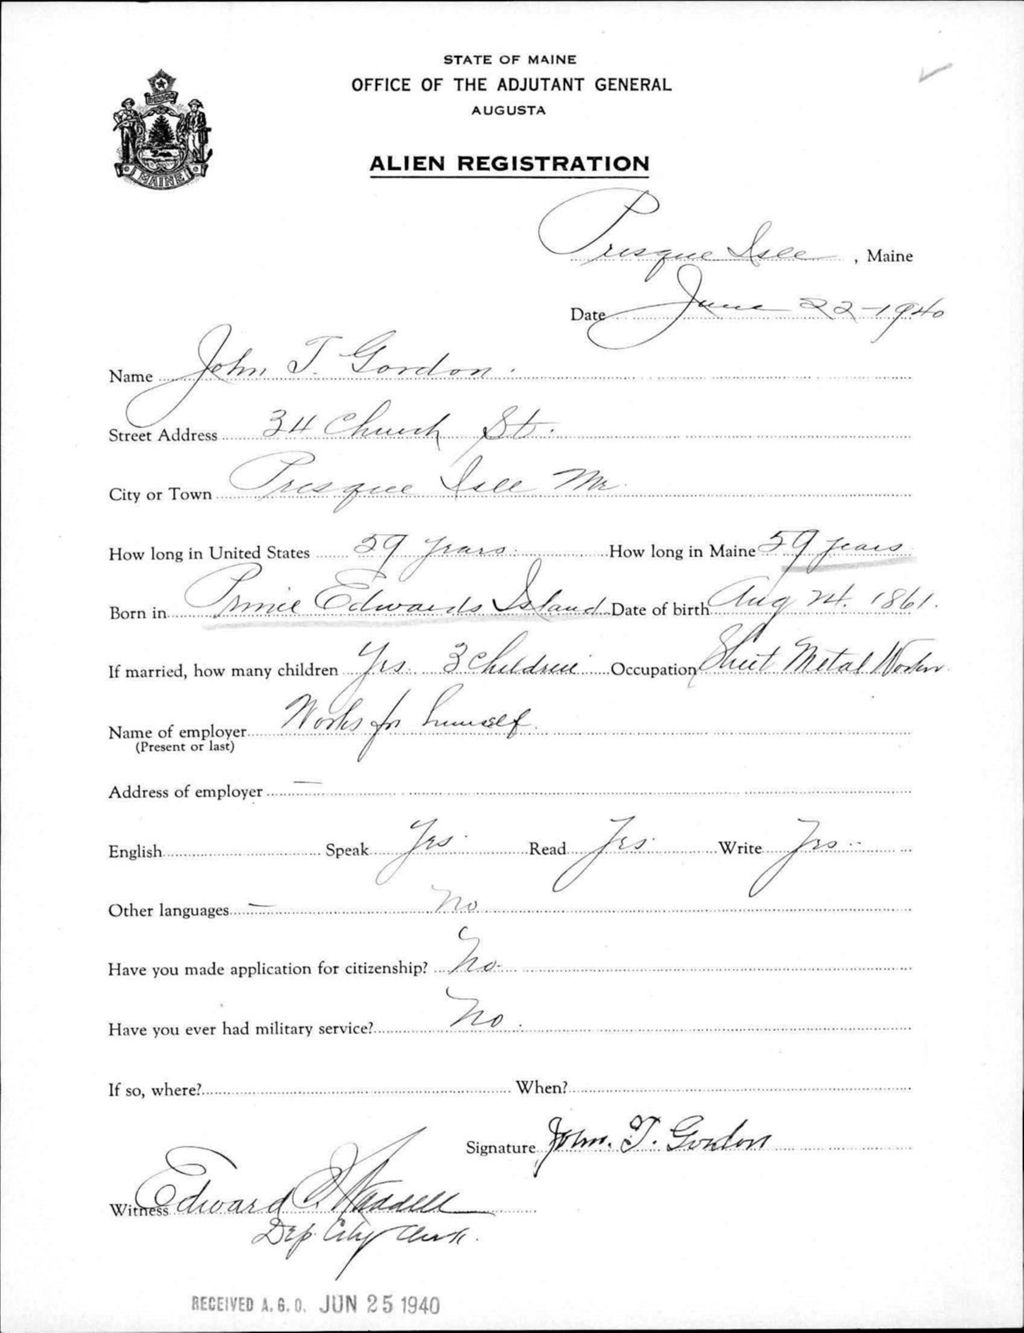 STATE OF MAINE
OFFICE OF THE ADJUTANT GENERAL
AUGUSTA
ALIEN REGISTRATION
MAINE
Presque Isle, Maine
Date June 22-1940
Name John T. Gordon.
Street Address 34 Church St.
City or Town Presque Isle Me.
How long in United States 59 years. How long in Maine 59 years
Born in Prince Edwards Island Date of birth Aug 24. 1861.
If married, how many children Yes. 3 Children Occupation Sheet Metal Worker
Name of employer Works for himself.
(Present or last)
Address of employer —
English Speak Yes. Read Yes. Write Yes.
Other languages — No
Have you made application for citizenship? No.
Have you ever had military service? No.
If so, where? When?
Signature John. T. Gordon
Witness Edward Waddell
Dep. City Clerk.
RECEIVED A.G.O. JUN 25 1940